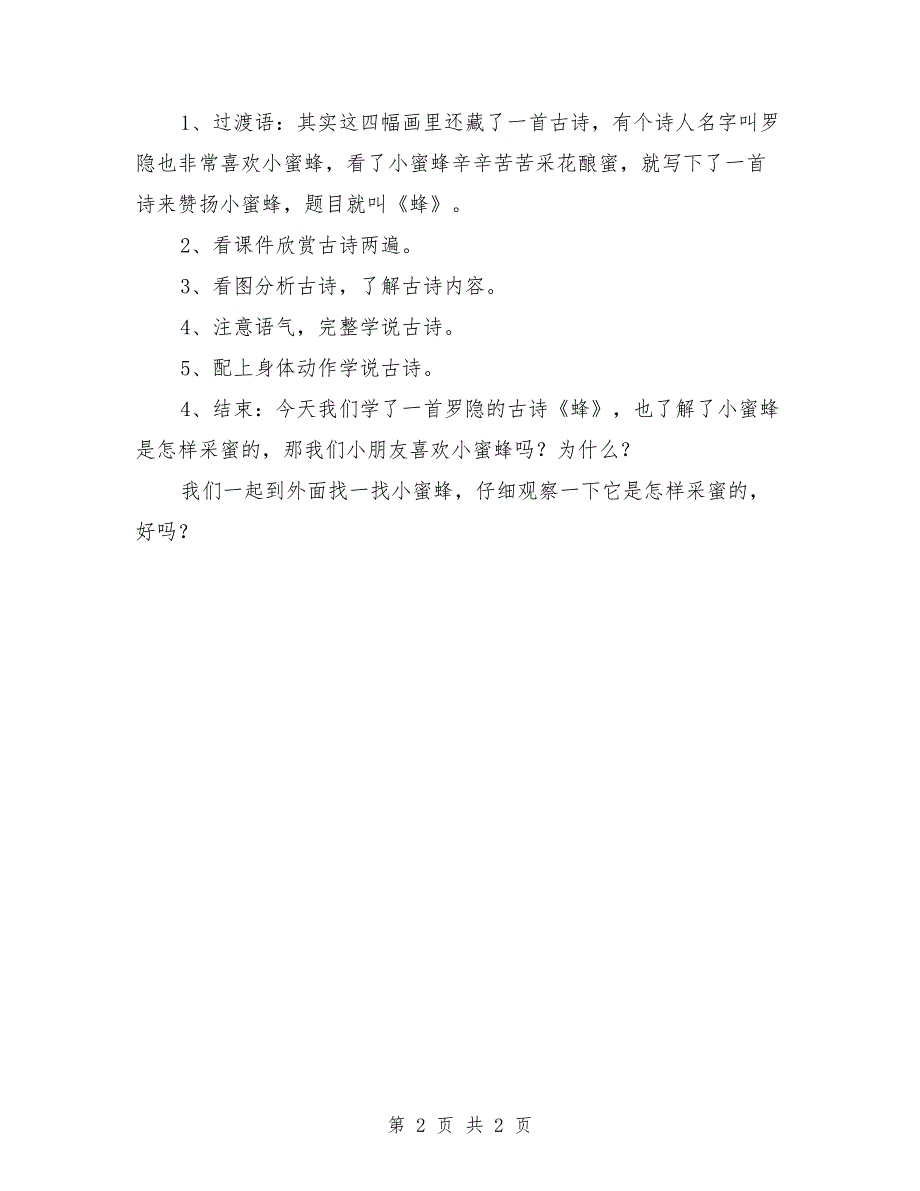 1、过渡语：其实这四幅画里还藏了一首古诗，有个诗人名字叫罗
隐也非常喜欢小蜜蜂，看了小蜜蜂辛辛苦苦采花酿蜜，就写下了一首
诗来赞扬小蜜蜂，题目就叫《蜂》。
2、看课件欣赏古诗两遍。
3、看图分析古诗，了解古诗内容。
4、注意语气，完整学说古诗。
5、配上身体动作学说古诗。
4、结束：今天我们学了一首罗隐的古诗《蜂》，也了解了小蜜蜂
是怎样采蜜的，那我们小朋友喜欢小蜜蜂吗？为什么？
我们一起到外面找一找小蜜蜂，仔细观察一下它是怎样采蜜的，
好吗？
第 2 页 共 2 页